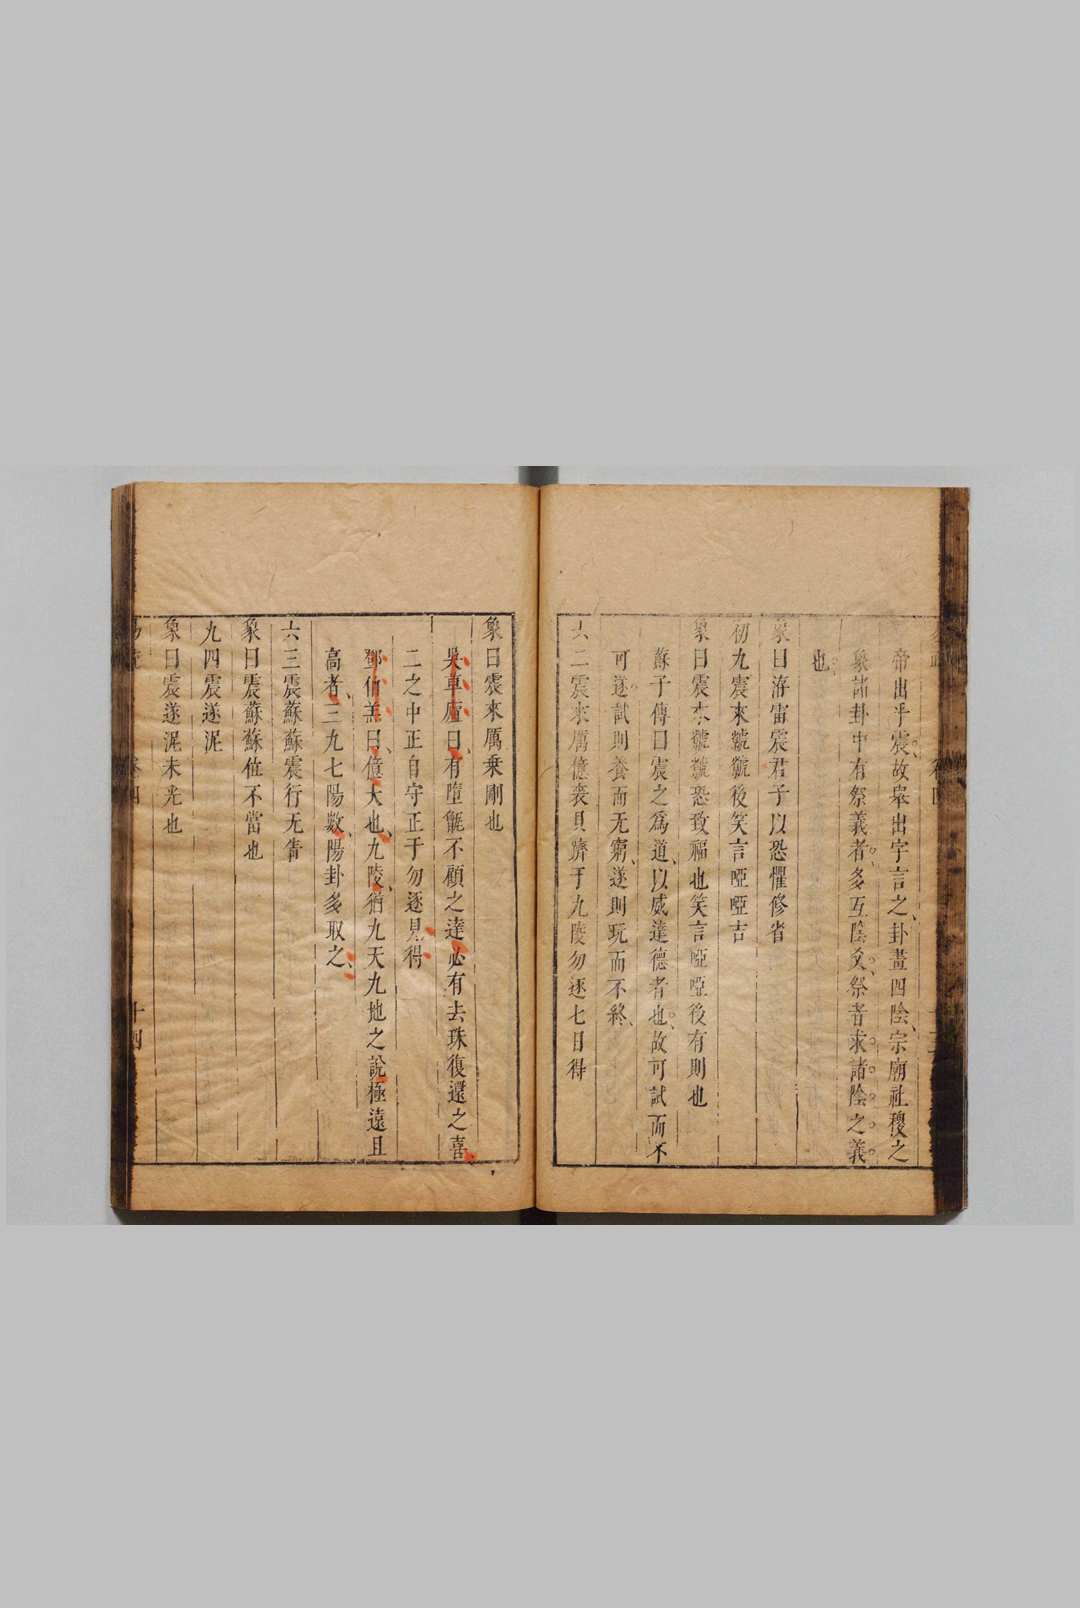 帝出乎震故㫖出字言之卦畫四陰宗廟社稷之
象諸卦中有祭義者多互陰爻祭者求諸陰之義
也
象曰洊雷震君子以恐懼修省
初九震來虩虩後笑言啞啞吉
象曰震來虩虩恐致福也笑言啞啞後有則也
蘇子傳曰震之爲道以威達德者也故可試而不
可遂試則養而无窮遂則玩而不終
六二震來厲億喪貝躋于九陵勿逐七日得
象曰震來厲乗剛也
吳草廬曰有墮甑不顧之達必有去珠復還之喜
二之中正自守正于勿逐見得
鄧伯羔曰億大也九陵猶九天九地之說極遠且
高者三九七陽數陽卦多取之
六三震蘇蘇震行无眚
象曰震蘇蘇位不當也
九四震遂泥
象曰震遂泥未光也
卷四
十四